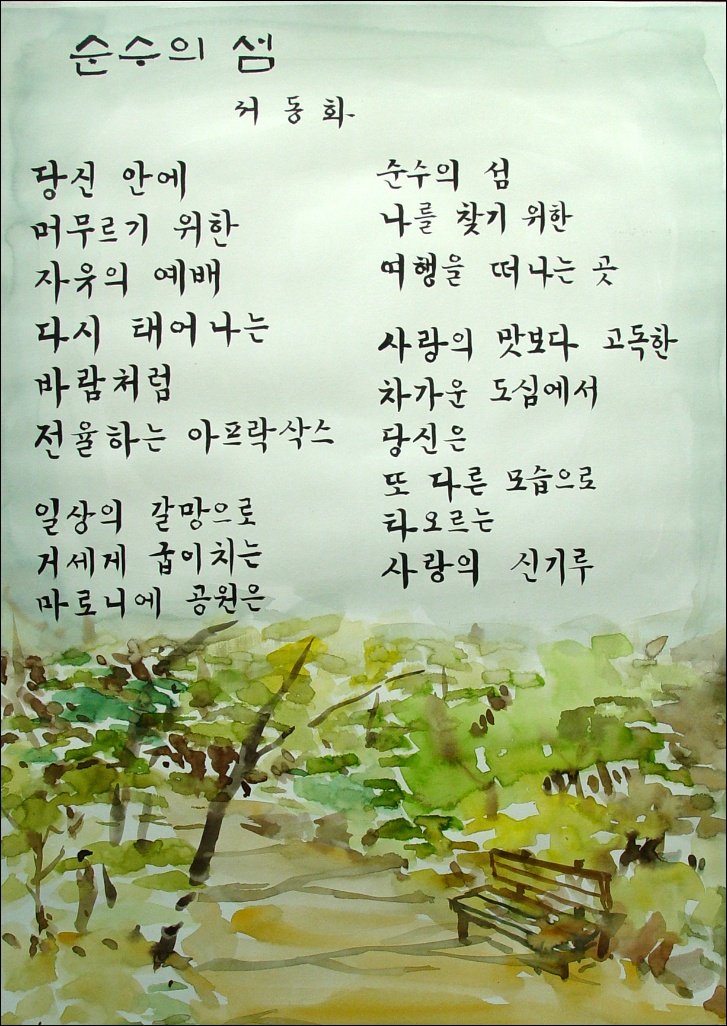 순수의 섬
서 동 화
당신 안에
머무르기 위한
자유의 예배
다시 태어나는
바람처럼
전율하는 아프락삭스
일상의 갈망으로
거세게 굽이치는
마로니에 공원은
순수의 섬
나를 찾기 위한
여행을 떠나는 곳
사랑의 맛보다 고독한
차가운 도심에서
당신은
또 다른 모습으로
타오르는
사랑의 신기루